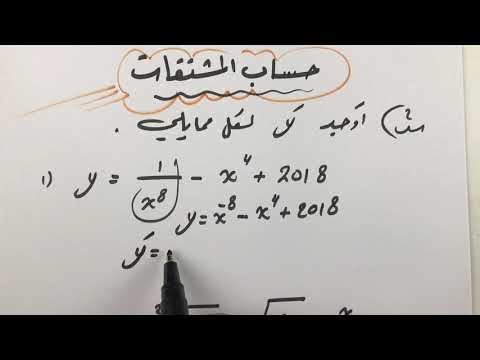 حساب المشتقات
مث) أوجد صَ لكل ممايلي .
1) y = 1/x⁸ - x⁴ + 2018
y = x⁻⁸ - x⁴ + 2018
y′ =